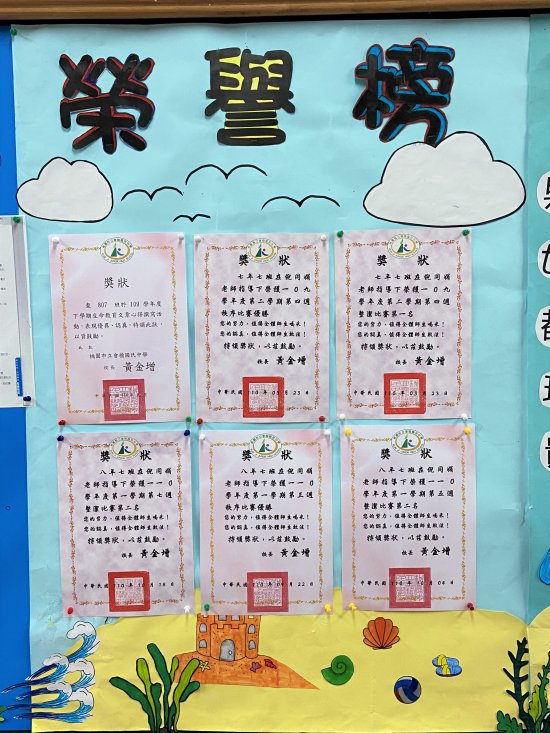 榮譽榜
獎狀
查 807 班於109學年度
下學期生命教育文章心得撰寫活
動，表現優異、認真，特頒此狀，
以資鼓勵。
此 致
桃園市立會稽國民中學
校長 黃金增
獎狀
七年七班在倪同嫺
老師指導下榮獲一0九
學年度第二學期第四週
秩序比賽優勝
您的努力，值得全體師生喝采！
您的認真，值得全體師生效法！
特頒獎狀，以茲鼓勵。
校長 黃金增
獎狀
七年七班在倪同嫺
老師指導下榮獲一0九
學年度第二學期第四週
整潔比賽第一名
您的努力，值得全體師生喝采！
您的認真，值得全體師生效法！
特頒獎狀，以茲鼓勵。
校長 黃金增
中華民國 110 年 03 月 23 日
獎狀
八年七班在倪同嫺
老師指導下榮獲一一0
學年度第一學期第七週
整潔比賽第二名
您的努力，值得全體師生喝采！
您的認真，值得全體師生效法！
特頒獎狀，以茲鼓勵。
校長 黃金增
獎狀
八年七班在倪同嫺
老師指導下榮獲一一0
學年度第一學期第三週
秩序比賽優勝
您的努力，值得全體師生喝采！
您的認真，值得全體師生效法！
特頒獎狀，以茲鼓勵。
校長 黃金增
獎狀
八年七班在倪同嫺
老師指導下榮獲一一0
學年度第一學期第五週
整潔比賽第二名
您的努力，值得全體師生喝采！
您的認真，值得全體師生效法！
特頒獎狀，以茲鼓勵。
校長 黃金增
中華民國 110 年 10 月 06 日